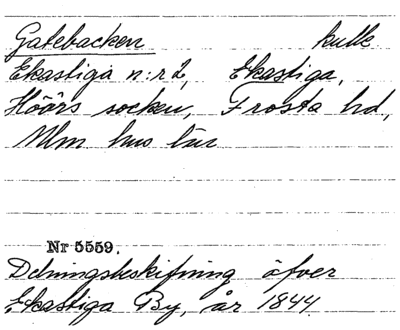 Gatebacken kulle
Ekastiga n:r 2, Ekastiga,
Höörs socken, Frosta hd,
Mlm hus län
Nr 5559.
Delningsbeskifning öfver
Ekastiga By, år 1844.